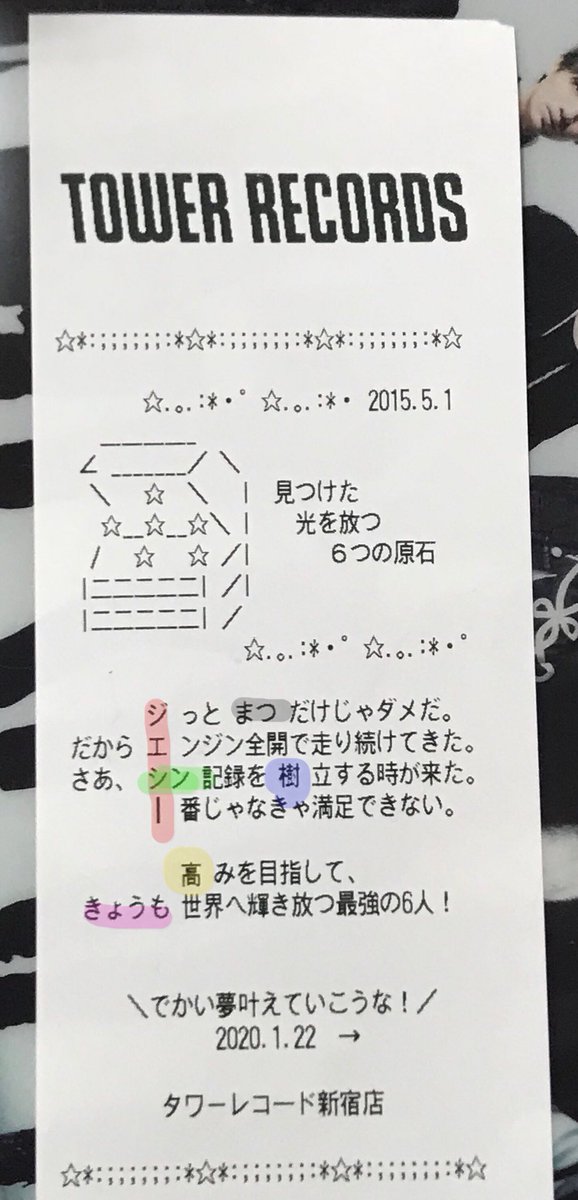 TOWER RECORDS
☆*:;;;;;;:*☆*:;;;;;;:*☆*:;;;;;;:*☆
☆.｡.:*・ﾟ ☆.｡.:*・ 2015.5.1
見つけた
光を放つ
６つの原石
☆.｡.:*・ﾟ ☆.｡.:*・ﾟ
ジっと まつ だけじゃダメだ。
だから エ ンジン全開で走り続けてきた。
さあ、 シン 記録を 樹 立する時が来た。
｜ 番じゃなきゃ満足できない。
高 みを目指して、
きょうも 世界へ輝き放つ最強の6人！
＼でかい夢叶えていこうな！／
2020.1.22 →
タワーレコード新宿店
☆*:;;;;;;:*☆*:;;;;;;:*☆*:;;;;;;:*☆